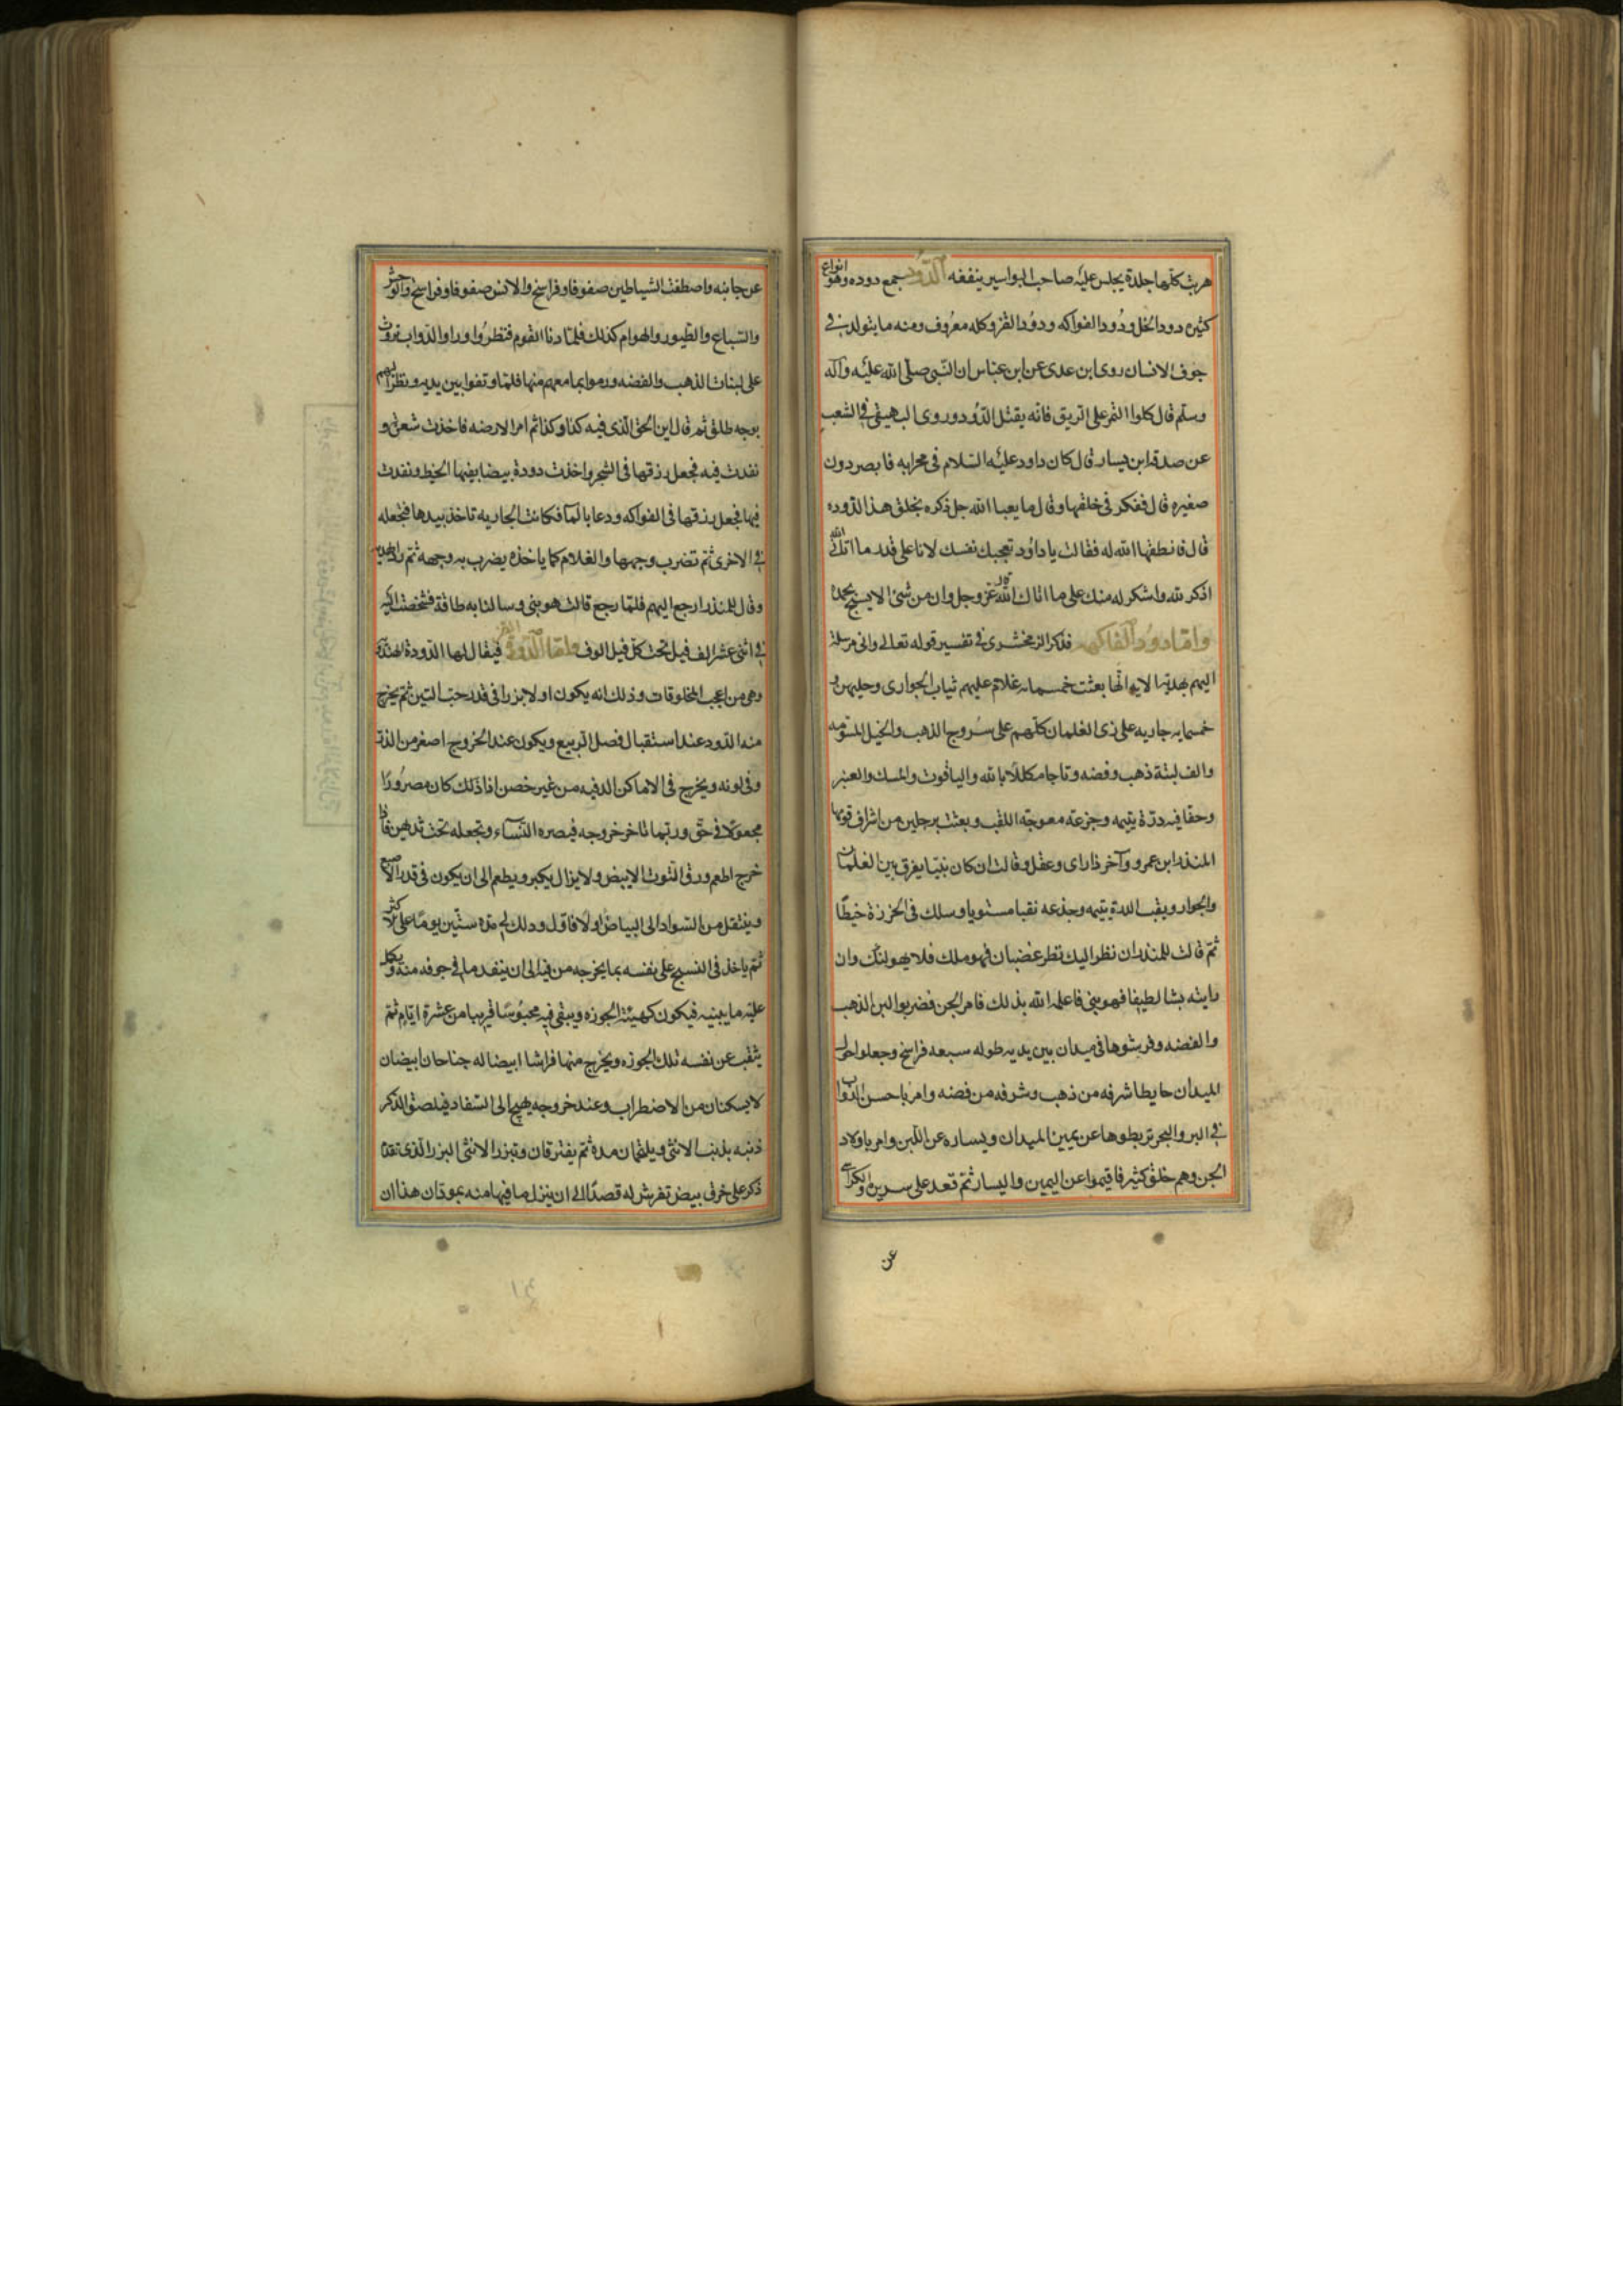 هربت كلها جلدة يجلس عليه صاحب البواسير ينفعه الدود جمع دوده وهو انواع
كثيره دود الخل ودود الفواكه ودود القز وكله معروف ومنه ما يتولد في
جوف الانسان روى ابن عدى عن ابن عباس ان النبى صلى الله عليه وآله
وسلم قال كلوا التمر على الريق فانه يقتل الدود وروى البهيقى فى الشعب
عن صدقه ابن يسار قال كان داود عليه السلام فى محرابه فابصر دون
صغيره قال ففكر فى خلقها وقال ما يعبا الله جل ذكره بخلق هذا الدوده
قال فانطقها الله له فقالت يا داود تعجبك نفسك لانا على قدر ما اتانى الله
اذكر لله واشكر له منك على ما اتاك الله قال الله عز وجل وان من شئ الا يسبح بحمده
واما دود الفاكهه فذكر الزمخشرى فى تفسير قوله تعالى وانى مرسلة
اليهم بهدية الايه انها بعثت خمسمايه غلام عليهم ثياب الجوارى وحليهن و
خمسمايه جاريه على زى الغلمان كلهم على سروج الذهب والخيل المسومه
والف لبنة ذهب وفضه وتاجا مكللا بالله والياقوت والمسك والعنبر
وحقا فيه درة يتيمه وجزعه معوجة الثقب وبعثت برجلين من اشراف قومها
المنذر ابن عمرو وآخر ذا راى وعقل وقالت ان كان نبيا يفرق بين الغلمان
والجوار ويثقب الدة يتيمه وجذعه نقبا مستويا وسلك فى الخرزة خيطا
ثم قالت للمنذر ان نظر اليك نظر غضبان فهو ملك فلا يهولنك وان
رايته بشا لطيفا فهو بنى فاعلمه الله بذلك فامر الجن فضربوا لبن الذهب
والفضه وفرشوها فى ميدان بين يديه طوله سبعه فراسخ وجعلوا حول
الميدان حايطا شرفه من ذهب وشرفه من فضه وامر باحسن الدواب
فى البر والبحر تربطوها عن يمين الميدان ويساره عن اللبن وامر باولاد
الجن وهم خلق كثير فاقيموا عن اليمين واليسار ثم قعد على سريره والكراسى
عن
عن جانبه واصطفت الشياطين صفوفا وفراسخ والانس صفوفا وفراسخ والوحش
والسباع والطيور والهوام كذلك فلما دنا القوم فنظروا وراوا الدواب تروث
على لبنات الذهب والفضه ورموا بما معهم منها فلما وقفوا بين يديه ونظر اليهم
بوجه طلق ثم قال اين الحق الذى فيه كذا وكذا ثم امر الارضه فاخذت شعرة و
نفدت فيه فجعل رزقها فى الشجر واخذت دودة بيضا بفيها الخيط ونفدت
فيها فجعل رزقها فى الفواكه ودعا بالمآ فكانت الجاريه تاخذ بيدها فتجعله
فى الاخرى ثم تضرب وجهها والغلام كما ياخذه يضرب به وجهه ثم رد الهديه
وقال للمنذر ارجع اليهم فلما رجع قالت هو بنى وسالنا به طاقة فشخصت اليه
فى اثنى عشر الف قيل تحت كل قيل الوف واما الدود القز فيقال لها الدودة الهندية
وهى من اعجب المخلوقات وذلك انه يكون اولا بزرا فى قدر حب التين ثم يخرج
منه الدود عند استقبال فصل الربيع ويكون عند الخروج اصغر من الذر
وفى لونه ويخرج فى الاماكن الدفيه من غير حضن اذا ذلك كان مصرورا
مجعولا فى حق وربما تاخر خروجه فيصره النساء وتجعله تحت ثديهن فاذا
خرج اطعم ورق التوت الابيض ولا يزال يكبر ويطعم الى ان يكون فى قدر الاصبع
وينتقل من السواد الى البياض اولا فاول ودلك فى مدة ستين يوما على الاكثر
ثم ياخذ فى النسج على نفسه بما يخرجه من فيه الى ان ينفد ما فى جوفه منه ويكمل
عليه ما يبنيه فيكون كهيئة الجوزه ويبقى فيه محبوسا قريبا من عشرة ايام ثم
يثقب عن نفسه تلك الجوزه ويخرج منها فراشا ابيضا له جناحان ابيضان
لا يسكنان من الاضطراب وعند خروجه يهيج الى السفاد فيلصق الذكر
ذنبه بذنب الانثى ويلتقمان مدة ثم يفترقان وتبزر الانثى البزر الذى تقدم
ذكر على خرق بيض تفرش له قصدا الى ان ينزل ما فيها منه يموتان هذا ان